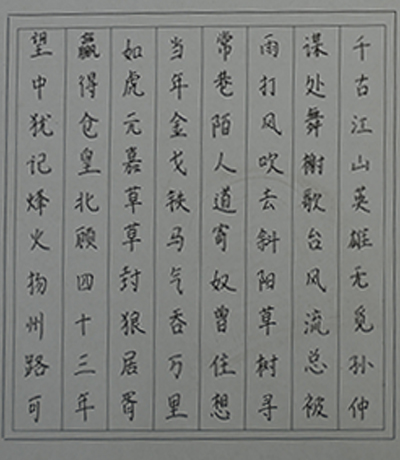 千古江山英雄无觅孙仲
谋处舞榭歌台风流总被
雨打风吹去斜阳草树寻
常巷陌人道寄奴曾住想
当年金戈铁马气吞万里
如虎元嘉草草封狼居胥
赢得仓皇北顾四十三年
望中犹记烽火扬州路可